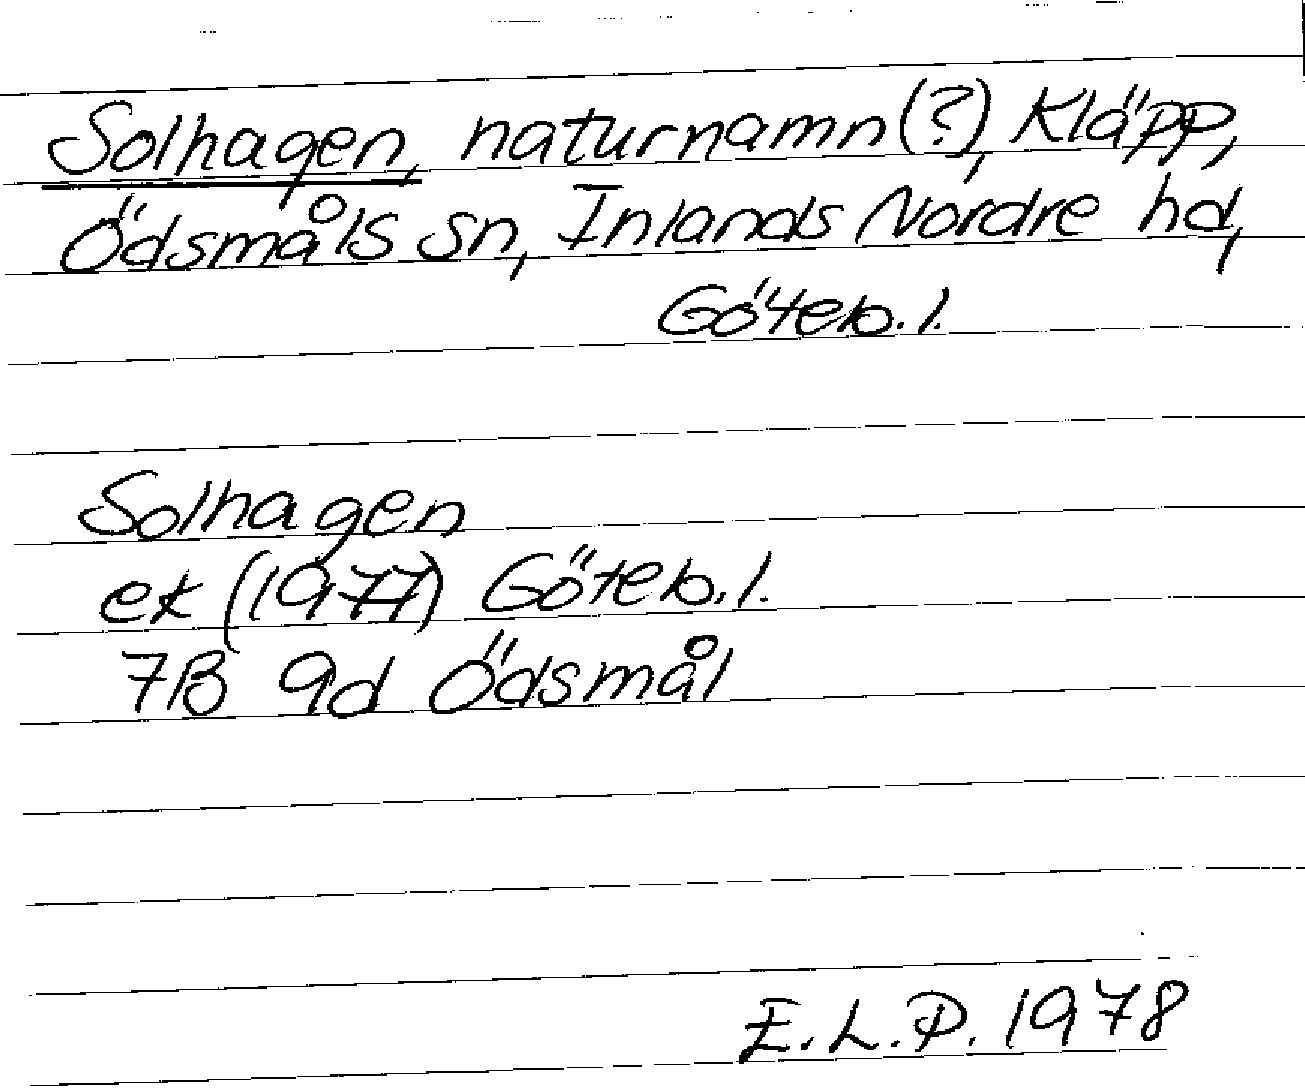 Solhagen, naturnamn(?), Kläpp,
Ödsmåls sn, Inlands Nordre hd,
Göteb.l.
Solhagen
ek (1977) Göteb.l.
7B 9d Ödsmål
E.L.P. 1978